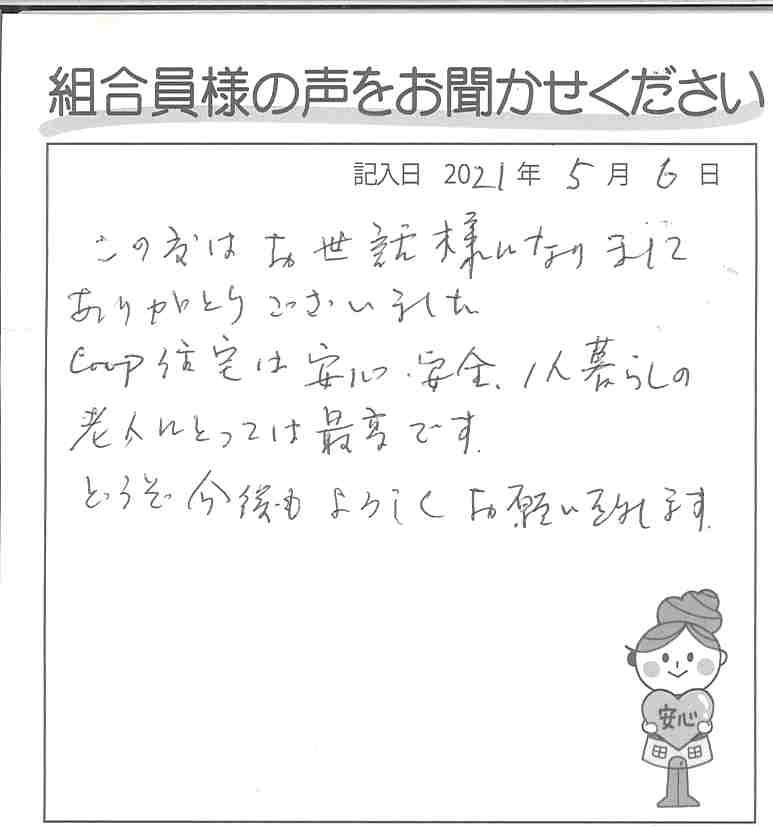 組合員様の声をお聞かせください
記入日 2021年 5月 6日
この度はお世話様になりまして
ありがとうございました
Coop住宅は安心・安全、1人暮らしの
老人にとっては最高です。
どうぞ今後もよろしくお願い致します。
安心